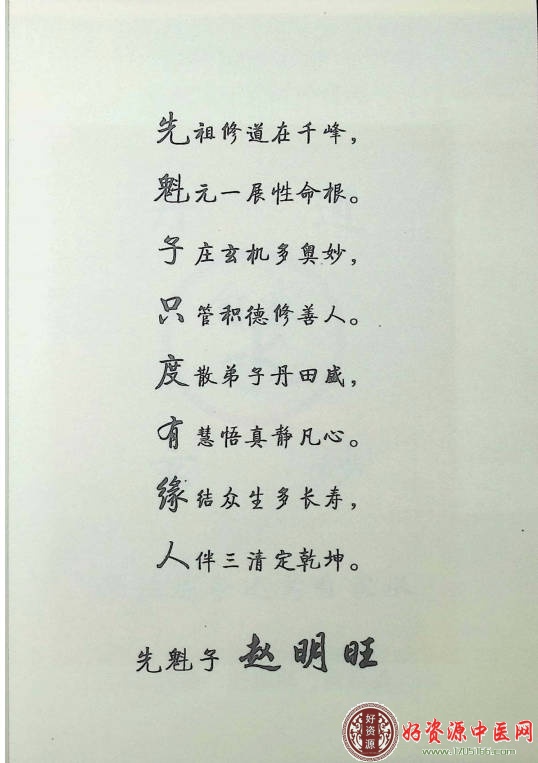 先祖修道在千峰，
魁元一展性命根。
子庄玄机多奥妙，
只管积德修善人。
度散弟子丹田盛，
有慧悟真静凡心。
缘结众生多长寿，
人伴三清定乾坤。
先魁子 赵明旺
好资源
好资源中医网
www.1705166.com